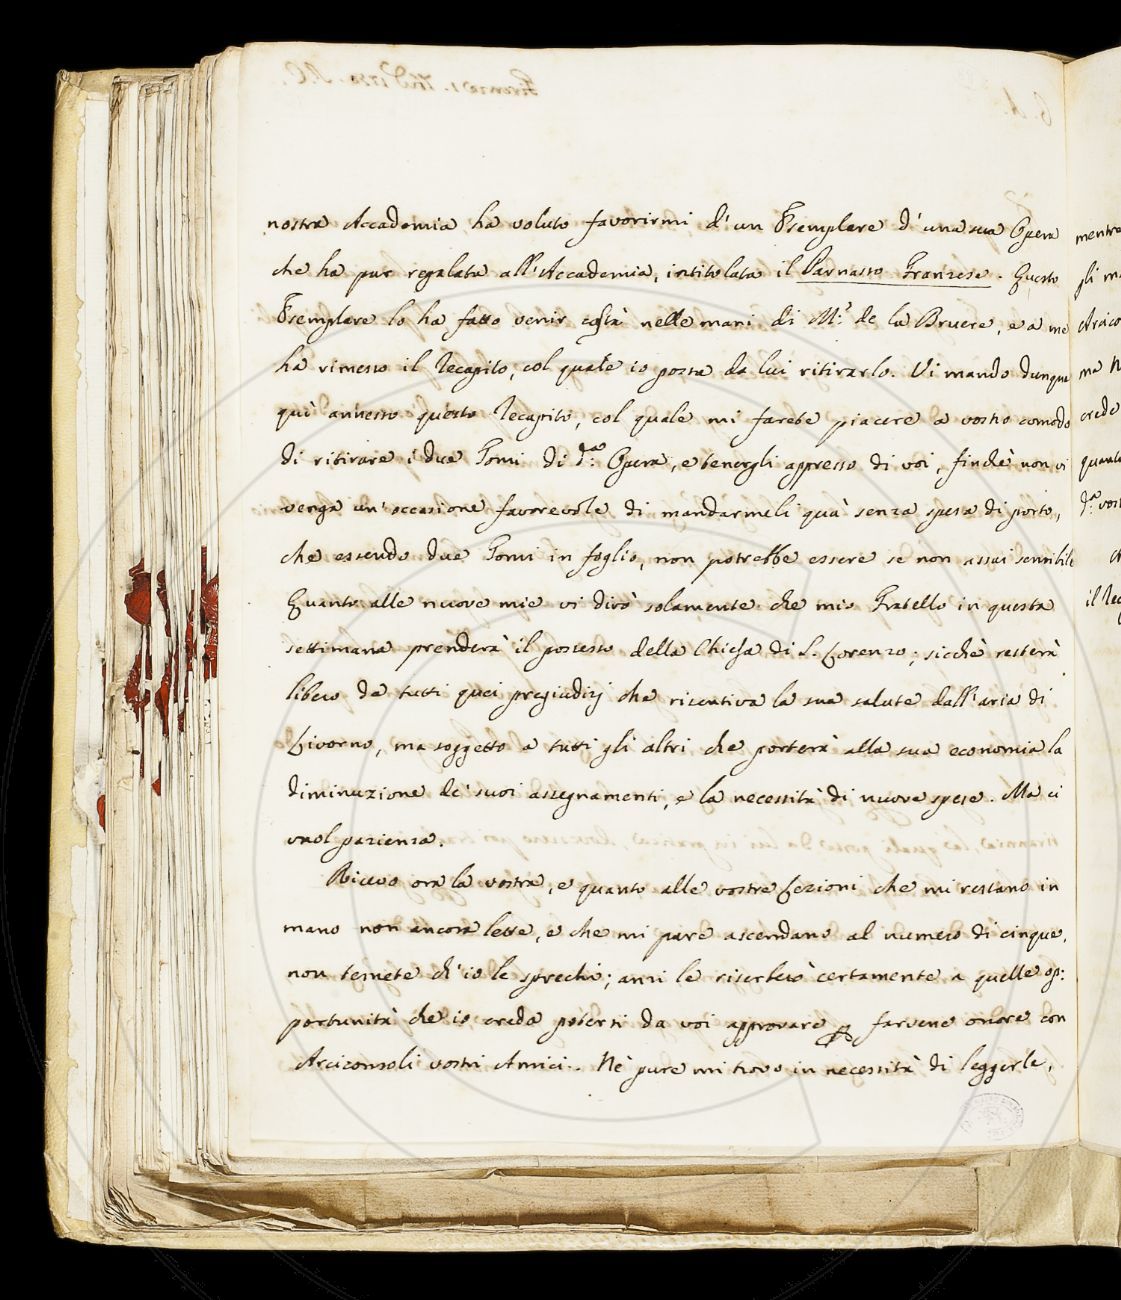 nostra Accademia ha voluto favorirmi d'un Esemplare d'una sua Opera
che ha pur regalata all'Accademia, intitolata il Parnasso Franzese. Questo
Esemplare lo ha fatto venir costà nelle mani di M.r de la Bruere, e a me
ha rimesso il Recapito, col quale io possa da lui ritirarlo. Vi mando dunque
quì annesso questo Recapito, col quale mi farete piacere a vostro comodo
di ritirare i due Tomi di d.a Opera, e tenergli appresso di voi, finchè non vi
venga un'occasione favorevole di mandarmeli quà senza spesa di porto,
che essendo due Tomi in foglio, non potrebbe essere se non assai sensibile
Quanto alle nuove mie vi dirò solamente che mio Fratello in questa
settimana prenderà il possesso della Chiesa di S. Lorenzo; sicchè resterà
libero da tutti quei pregiudizj che risentiva la sua salute dall'aria di
Livorno, ma soggetto a tutti gli altri che porterà alla sua economia la
diminuzione de' suoi assegnamenti, e la necessità di nuove spese. Ma ci
vuol pazienza.
Ricevo ora la vostra, e quanto alle vostre Lezioni che mi restano in
mano non ancora lette, e che mi pare ascendano al numero di cinque,
non temete ch'io le sprechi; anzi le riserberò certamente a quelle op:
portunità che io creda potersi da voi approvare per farvene onore con
Arciconsoli vostri Amici. Nè pure mi trovo in necessità di leggerle,
mentre
gli
crede
d.a